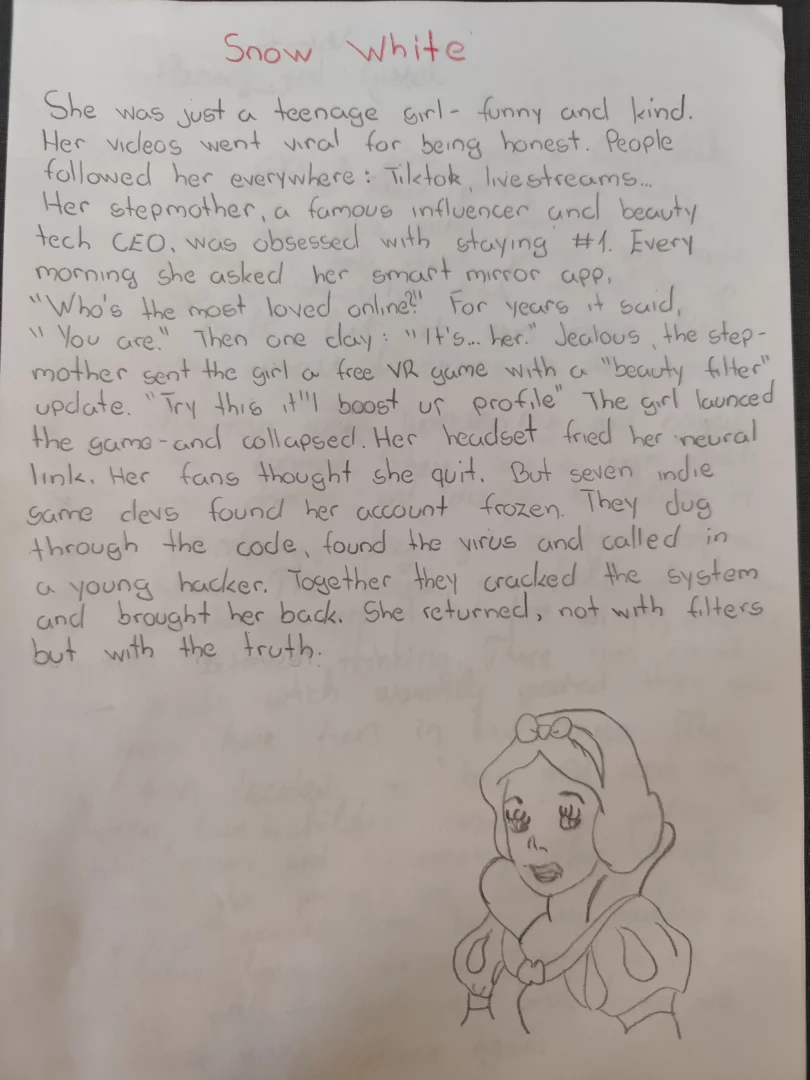 Snow White
She was just a teenage girl - funny and kind.
Her videos went viral for being honest. People
followed her everywhere: Tiktok, livestreams...
Her stepmother, a famous influencer and beauty
tech CEO, was obsessed with staying #1. Every
morning she asked her smart mirror app,
"Who's the most loved online?" For years it said,
"You are." Then one day: "It's... her." Jealous, the step-
mother sent the girl a free VR game with a "beauty filter"
update. "Try this it"ll boost ur profile" The girl launced
the game - and collapsed. Her headset fried her neural
link. Her fans thought she quit. But seven indie
game devs found her account frozen. They dug
through the code, found the virus and called in
a young hacker. Together they cracked the system
and brought her back. She returned, not with filters
but with the truth.